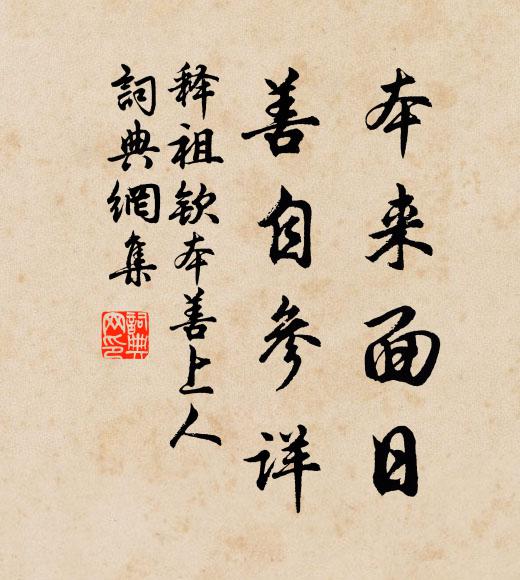 本来面目
善自参詳
释祖欽本善上人
詞典網集
詞典网印